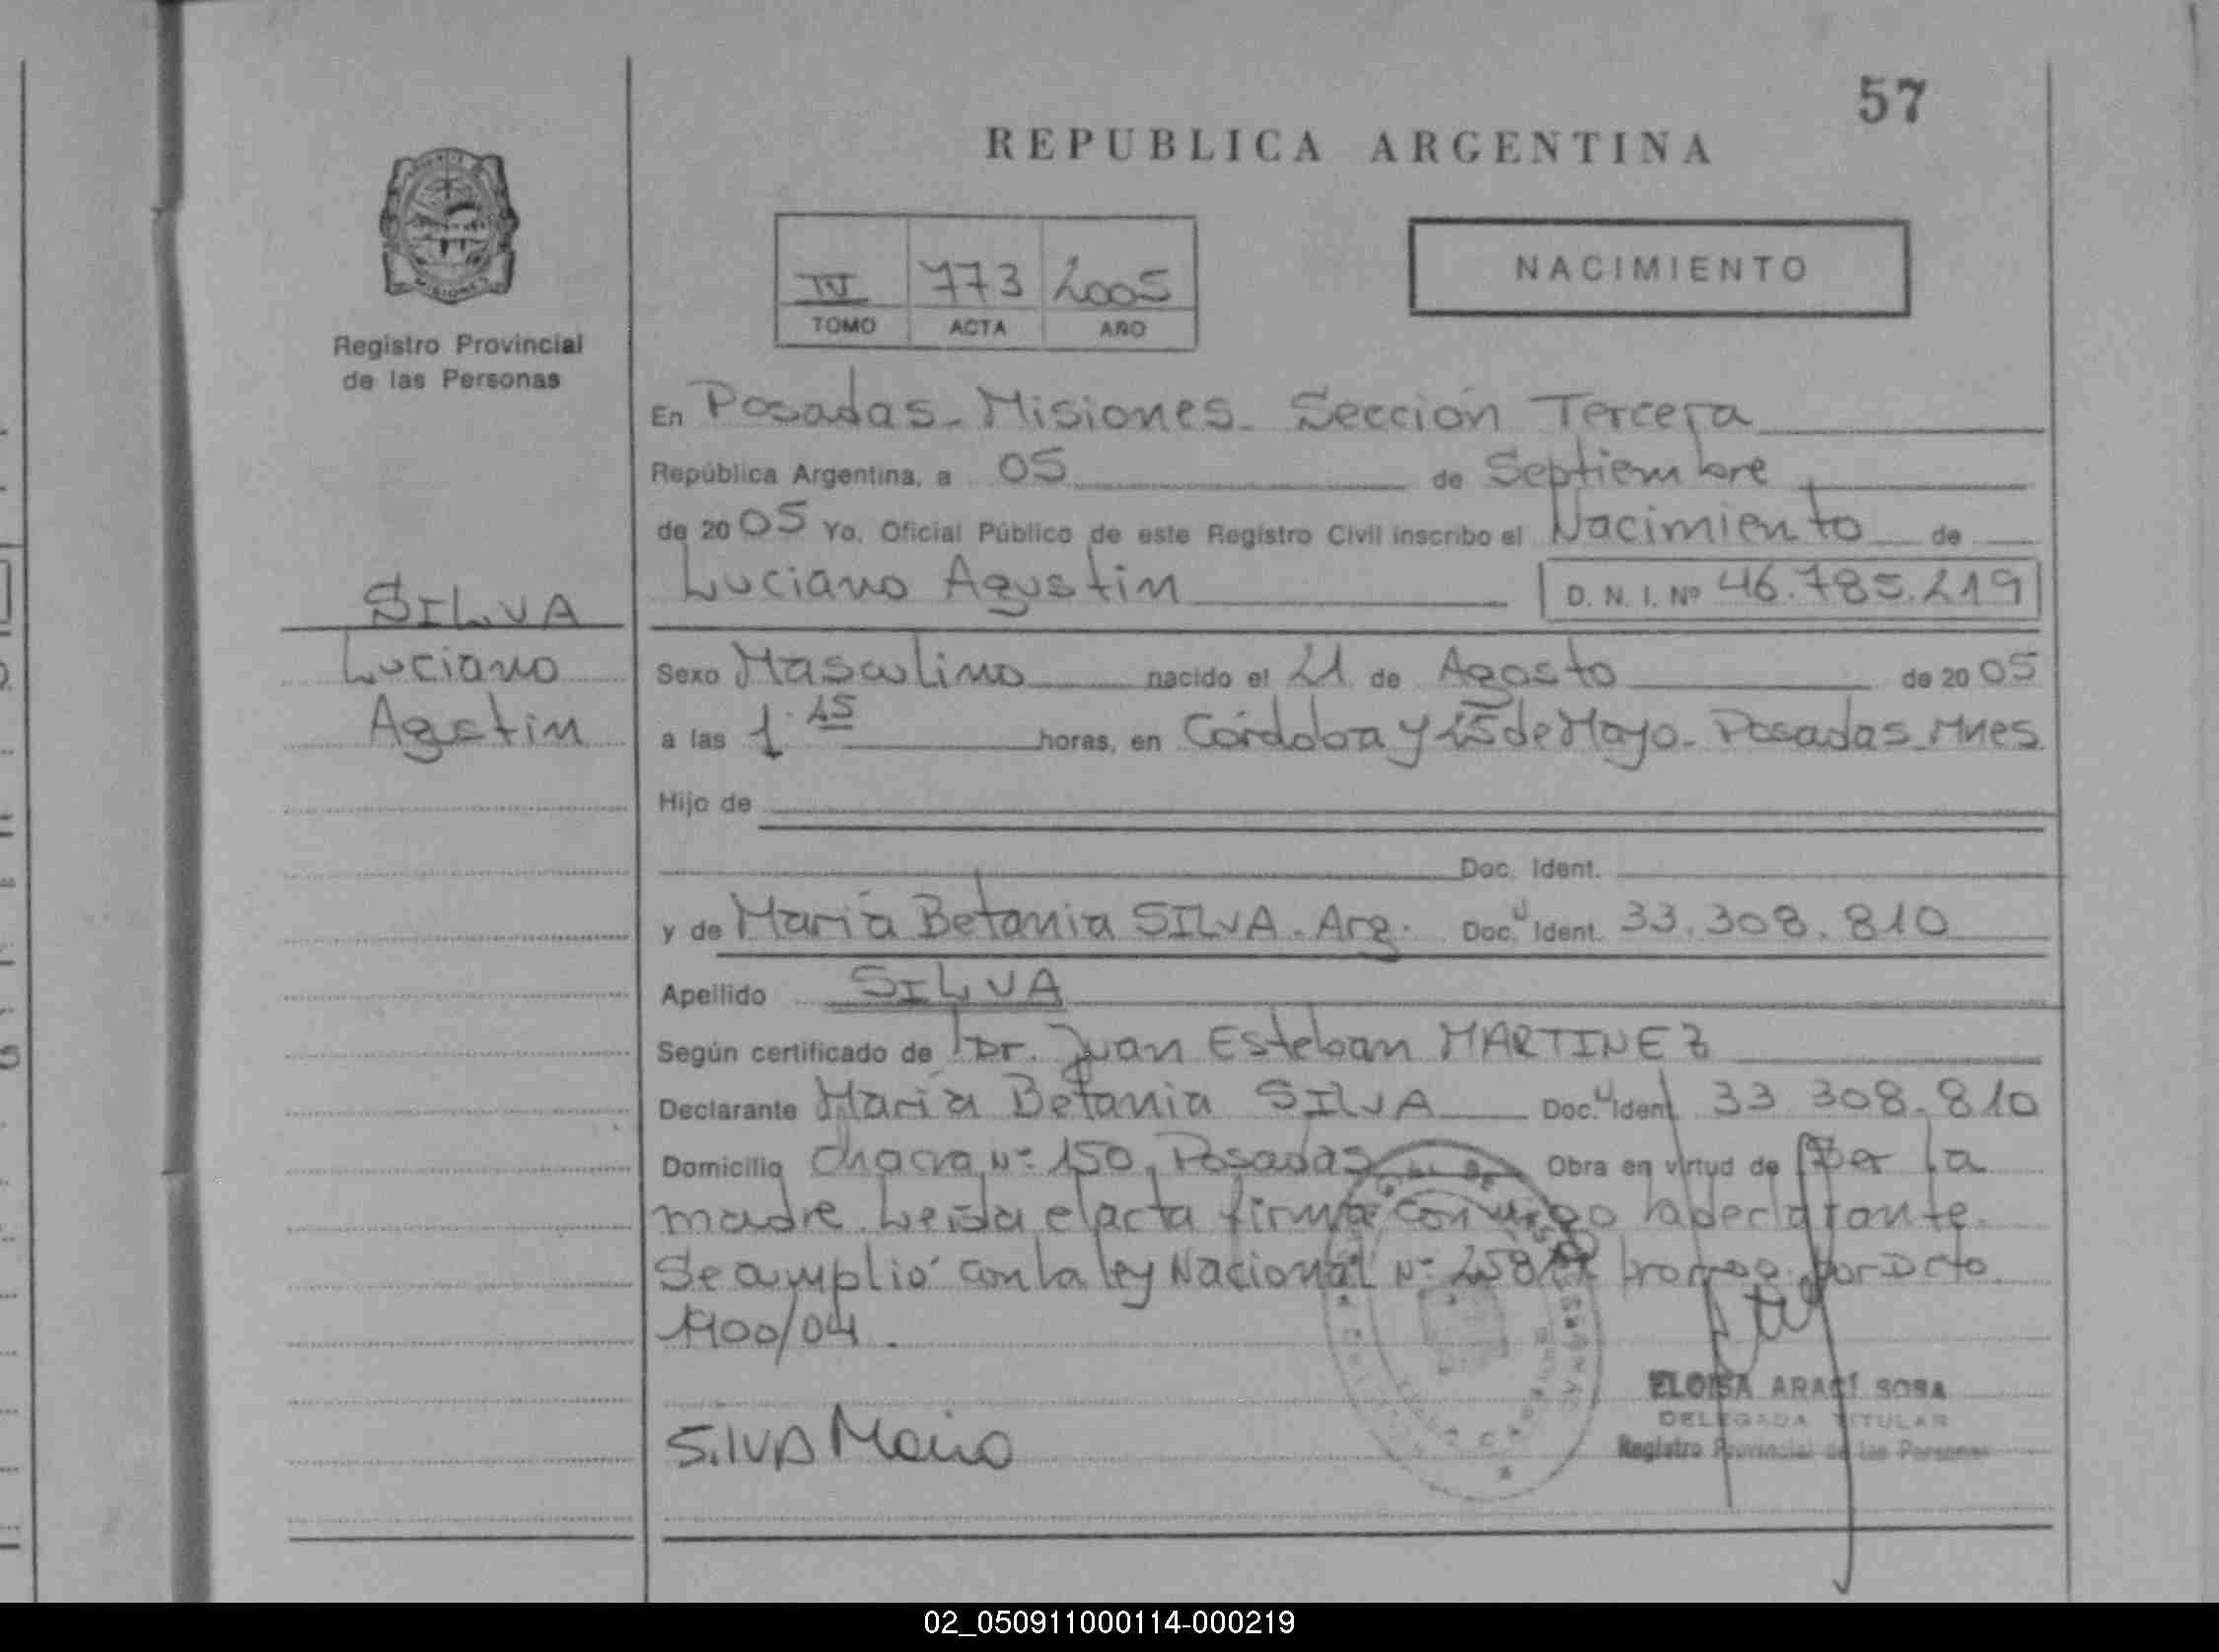 57
REPUBLICA ARGENTINA
MISIONES
Registro Provincial
de las Personas
IV 773 2005
TOMO ACTA AÑO
NACIMIENTO
En Posadas - Misiones - Sección Tercera
República Argentina, a 05 de Septiembre
de 2005 Yo, Oficial Público de este Registro Civil inscribo el Nacimiento de
Luciano Agustin D. N. I. Nº 46.785.219
SILVA
Luciano
Agustin
Sexo Masculino nacido el 21 de Agosto de 2005
a las 1.45 horas, en Córdoba y 25 de Mayo - Posadas - Mnes.
Hijo de
Doc. Ident.
y de María Betania SILVA. Arg. Doc. Ident. 33.308.810
Apellido SILVA
Según certificado de Dr. Juan Esteban MARTINEZ
Declarante María Betania SILVA Doc. Ident 33.308.810
Domicilio Chacra Nº 150, Posadas Obra en virtud de Ser la
madre. Leída el acta firma conmigo la declarante.
Se amplió con la ley Nacional Nº por Dcto
1900/04.
SILVA Maria
ELOISA ARACÍ SOSA
DELEGADA TITULAR
Registro Provincial de las Personas
02_050911000114-000219